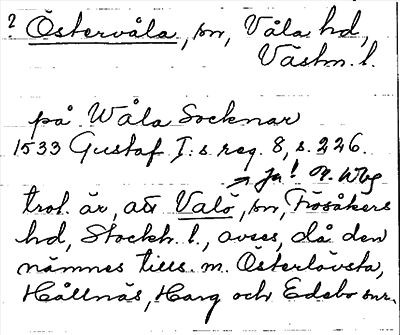 ? Östervåla, sn, Våla hd,
Västm. l.
på Wåla Socknar
1533 Gustaf I:s reg. 8, s. 226.
→ Ja! O. Wbg
trol. är, att Valö, sn, Frösåkers
hd, Stockh. l., avses, då den
nämnes tills. m. Österlövsta,
Hållnäs, Harg och Edebo snr.